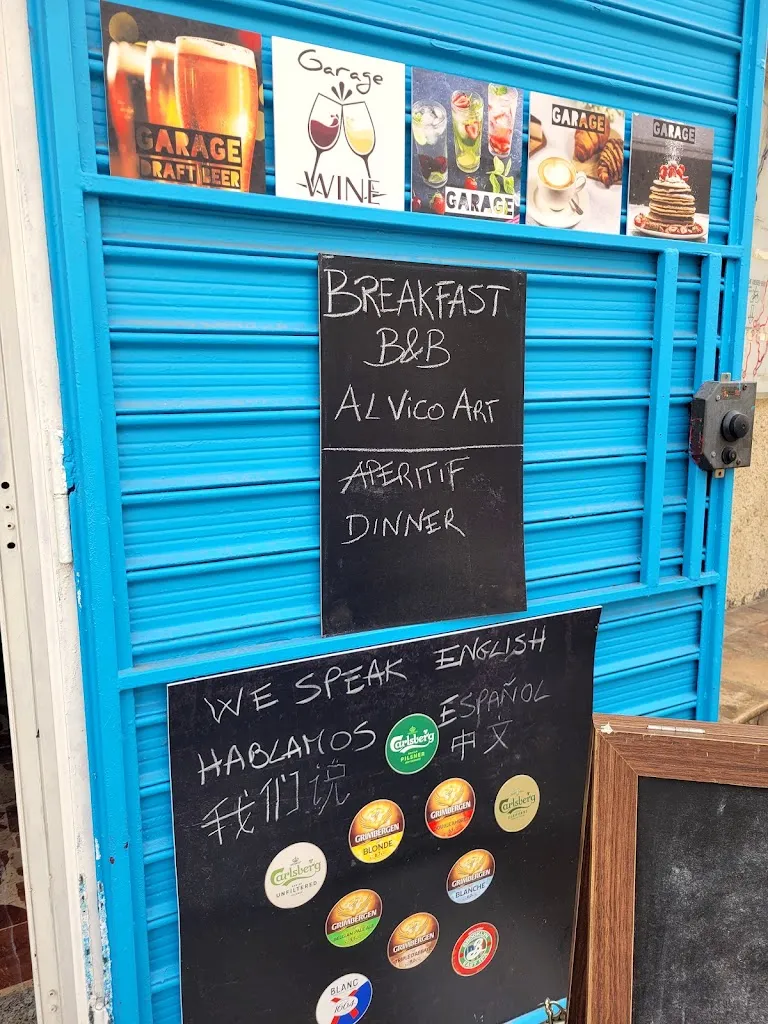 GARAGE
DRAFT BEER
Garage
WINE
GARAGE
GARAGE
GARAGE
BREAKFAST
B&B
AL VICO ART
APERITIF
DINNER
WE SPEAK ENGLISH
HABLAMOS ESPAÑOL
我们说 中文
Carlsberg
PILSNER
GRIMBERGEN
BLONDE
GRIMBERGEN
Carlsberg
Carlsberg
UNFILTERED
GRIMBERGEN
BLANCHE
GRIMBERGEN
BELGIAN PALE ALE
GRIMBERGEN
BROOKLYN
B
BLANC
1664